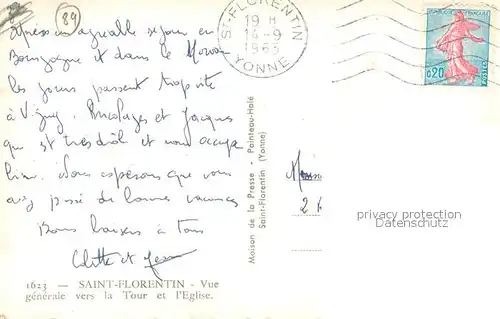 89
Après un agréable séjour en
Bourgogne et dans le Morvan
les jours passent trop vite
à Bricolages et Jacques
qui est très drôle et nous occupe
bien. Nous espérons que vous
avez passé de bonnes vacances
Bons baisers à tous
Colette et
1623 — SAINT-FLORENTIN - Vue
générale vers la Tour et l'Eglise.
Maison de la Presse - Pointeau-Halé
Saint-Florentin (Yonne)
ST-FLORENTIN
19 H
14-9
1963
YONNE
0,20
POSTES
privacy protection
Datenschutz